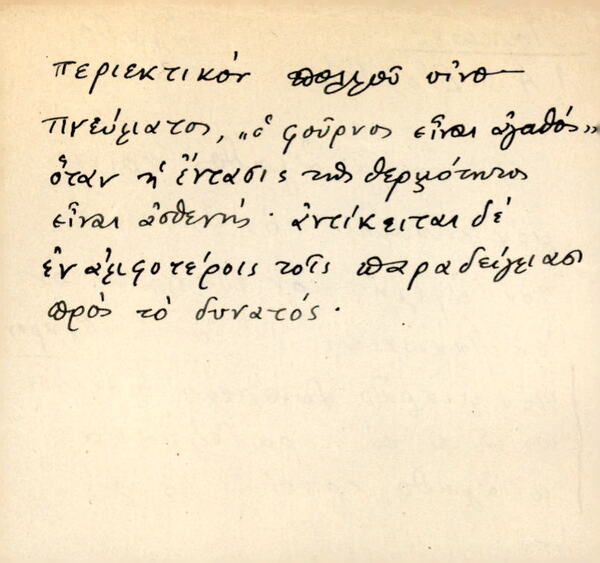 περιεκτικὸν πολλοῦ οἰνο-
πνεύματος, „ὁ φοῦρνος εἶναι ἀγαθός„
ὅταν ἡ ἔντασις τῆς θερμότητος
εἶναι ἀσθενής· ἀντίκειται δὲ
ἐν ἀμφοτέροις τοῖς παραδείγμασι
πρὸς τὸ δυνατός.